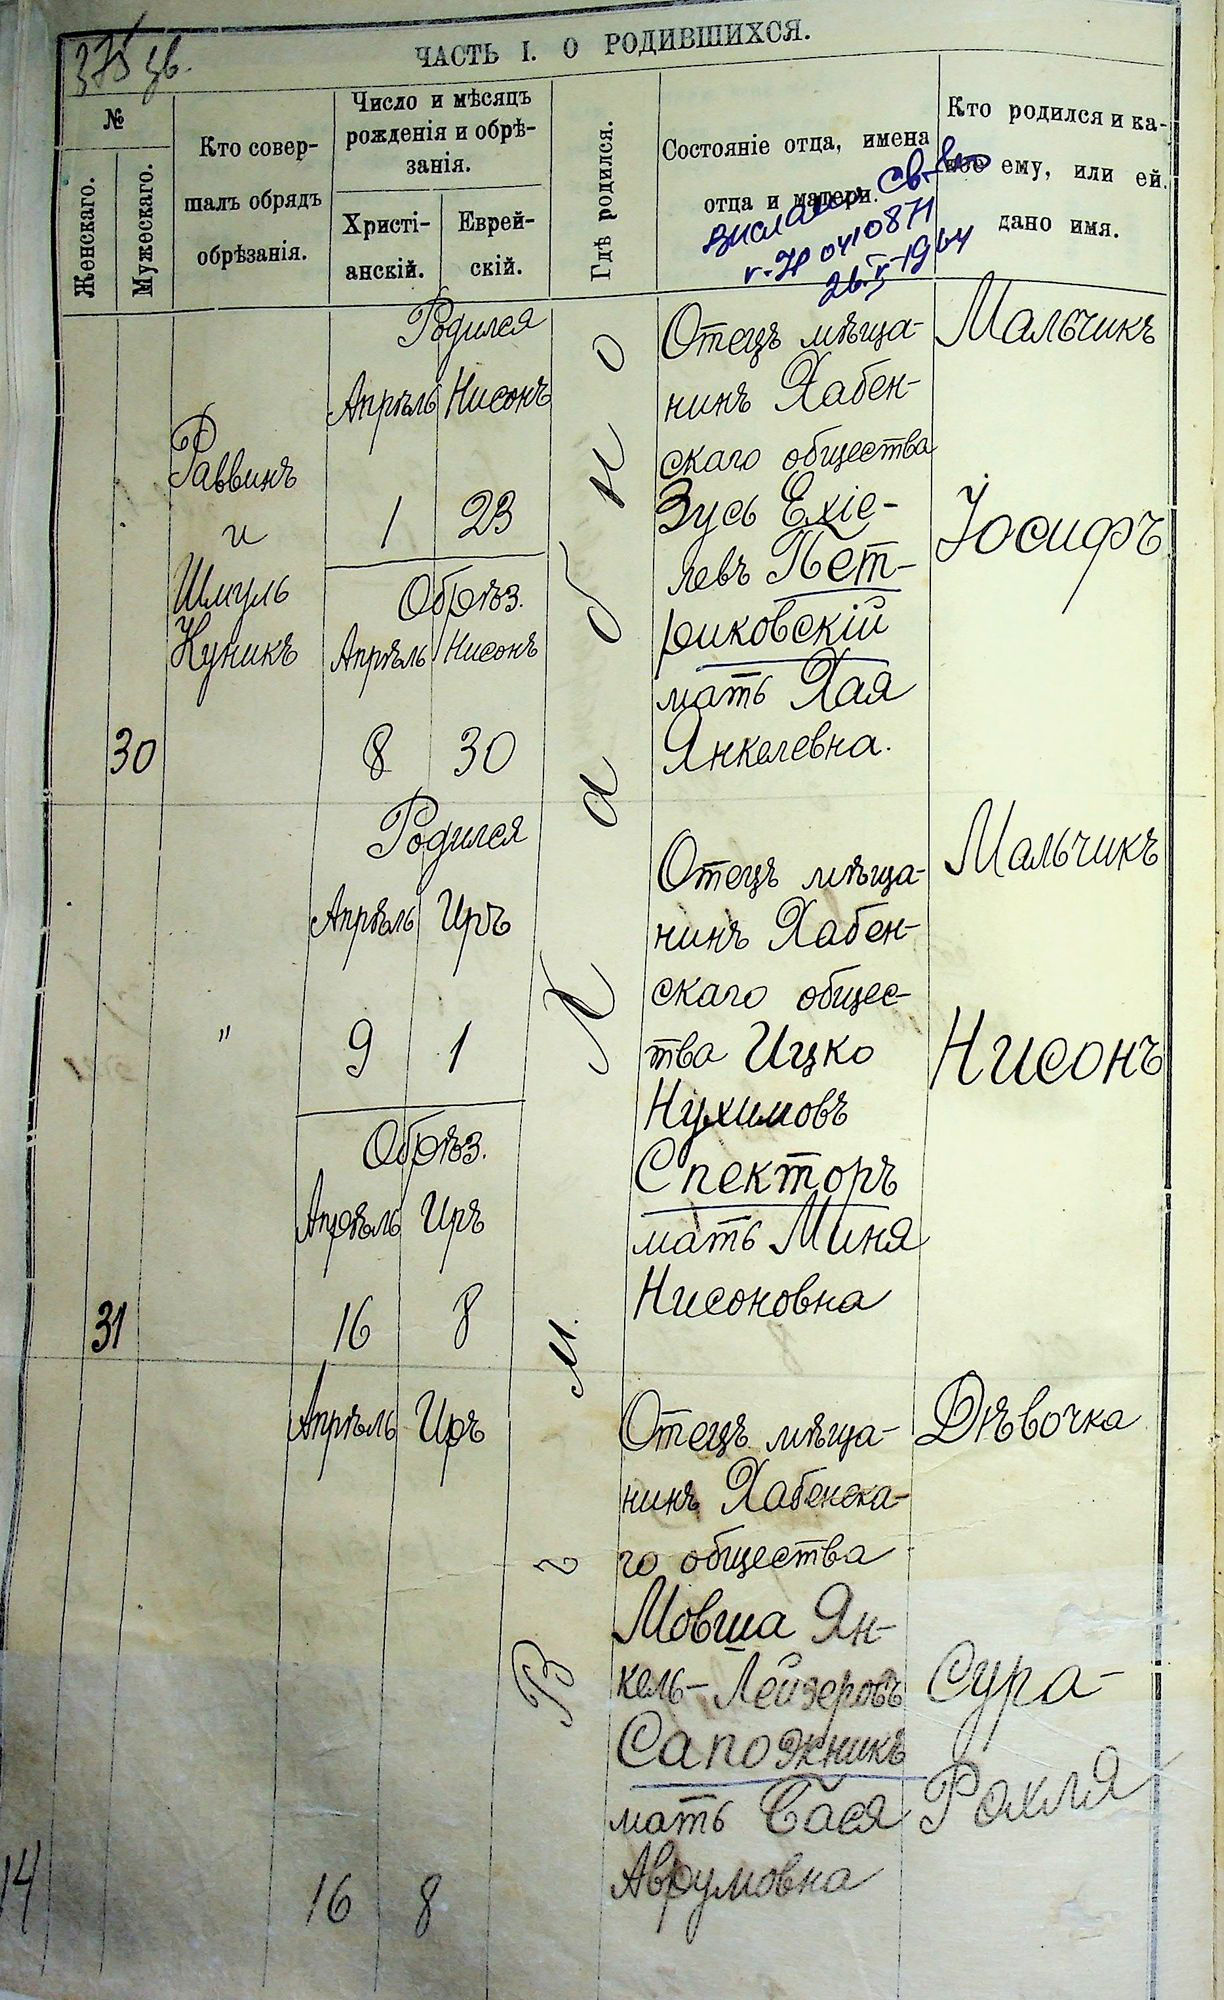 375 зв.
ЧАСТЬ I. О РОДИВШИХСЯ.
№
Женскаго.
Мужескаго.
Кто совер-
шалъ обрядъ
обрѣзанія.
Число и мѣсяцъ
рожденія и обрѣ-
занія.
Христі-
анскій.
Еврей-
скій.
Гдѣ родился.
Состояніе отца, имена
отца и матери.
Кто родился и ка-
кое ему, или ей
дано имя.
св-во
26.V-1964
В г. м. Хабно
30
Раввинъ
и
Шмуль
Куникъ
Родился
Апрѣль Нисонъ
1 23
Обрѣз.
Апрѣль Нисонъ
8 30
Отецъ мѣща-
нинъ Хабен-
скаго общества
Зусь Ехіе-
левъ Пет-
риковскій
мать Хая
Янкелевна.
Мальчикъ
Іосифъ
31
"
Родился
Апрѣль Иръ
9 1
Обрѣз.
Апрѣль Иръ
16 8
Отецъ мѣща-
нинъ Хабен-
скаго общес-
тва Ицко
Нухимовъ
Спекторъ
мать Миня
Нисоновна
Мальчикъ
Нисонъ
14
Апрѣль Иръ
16 8
Отецъ мѣща-
нинъ Хабенска-
го общества
Мовша Ян-
кель-Лейзеровъ
Сапожникъ
мать Бася
Аврумовна
Дѣвочка
Сура-
Рохля